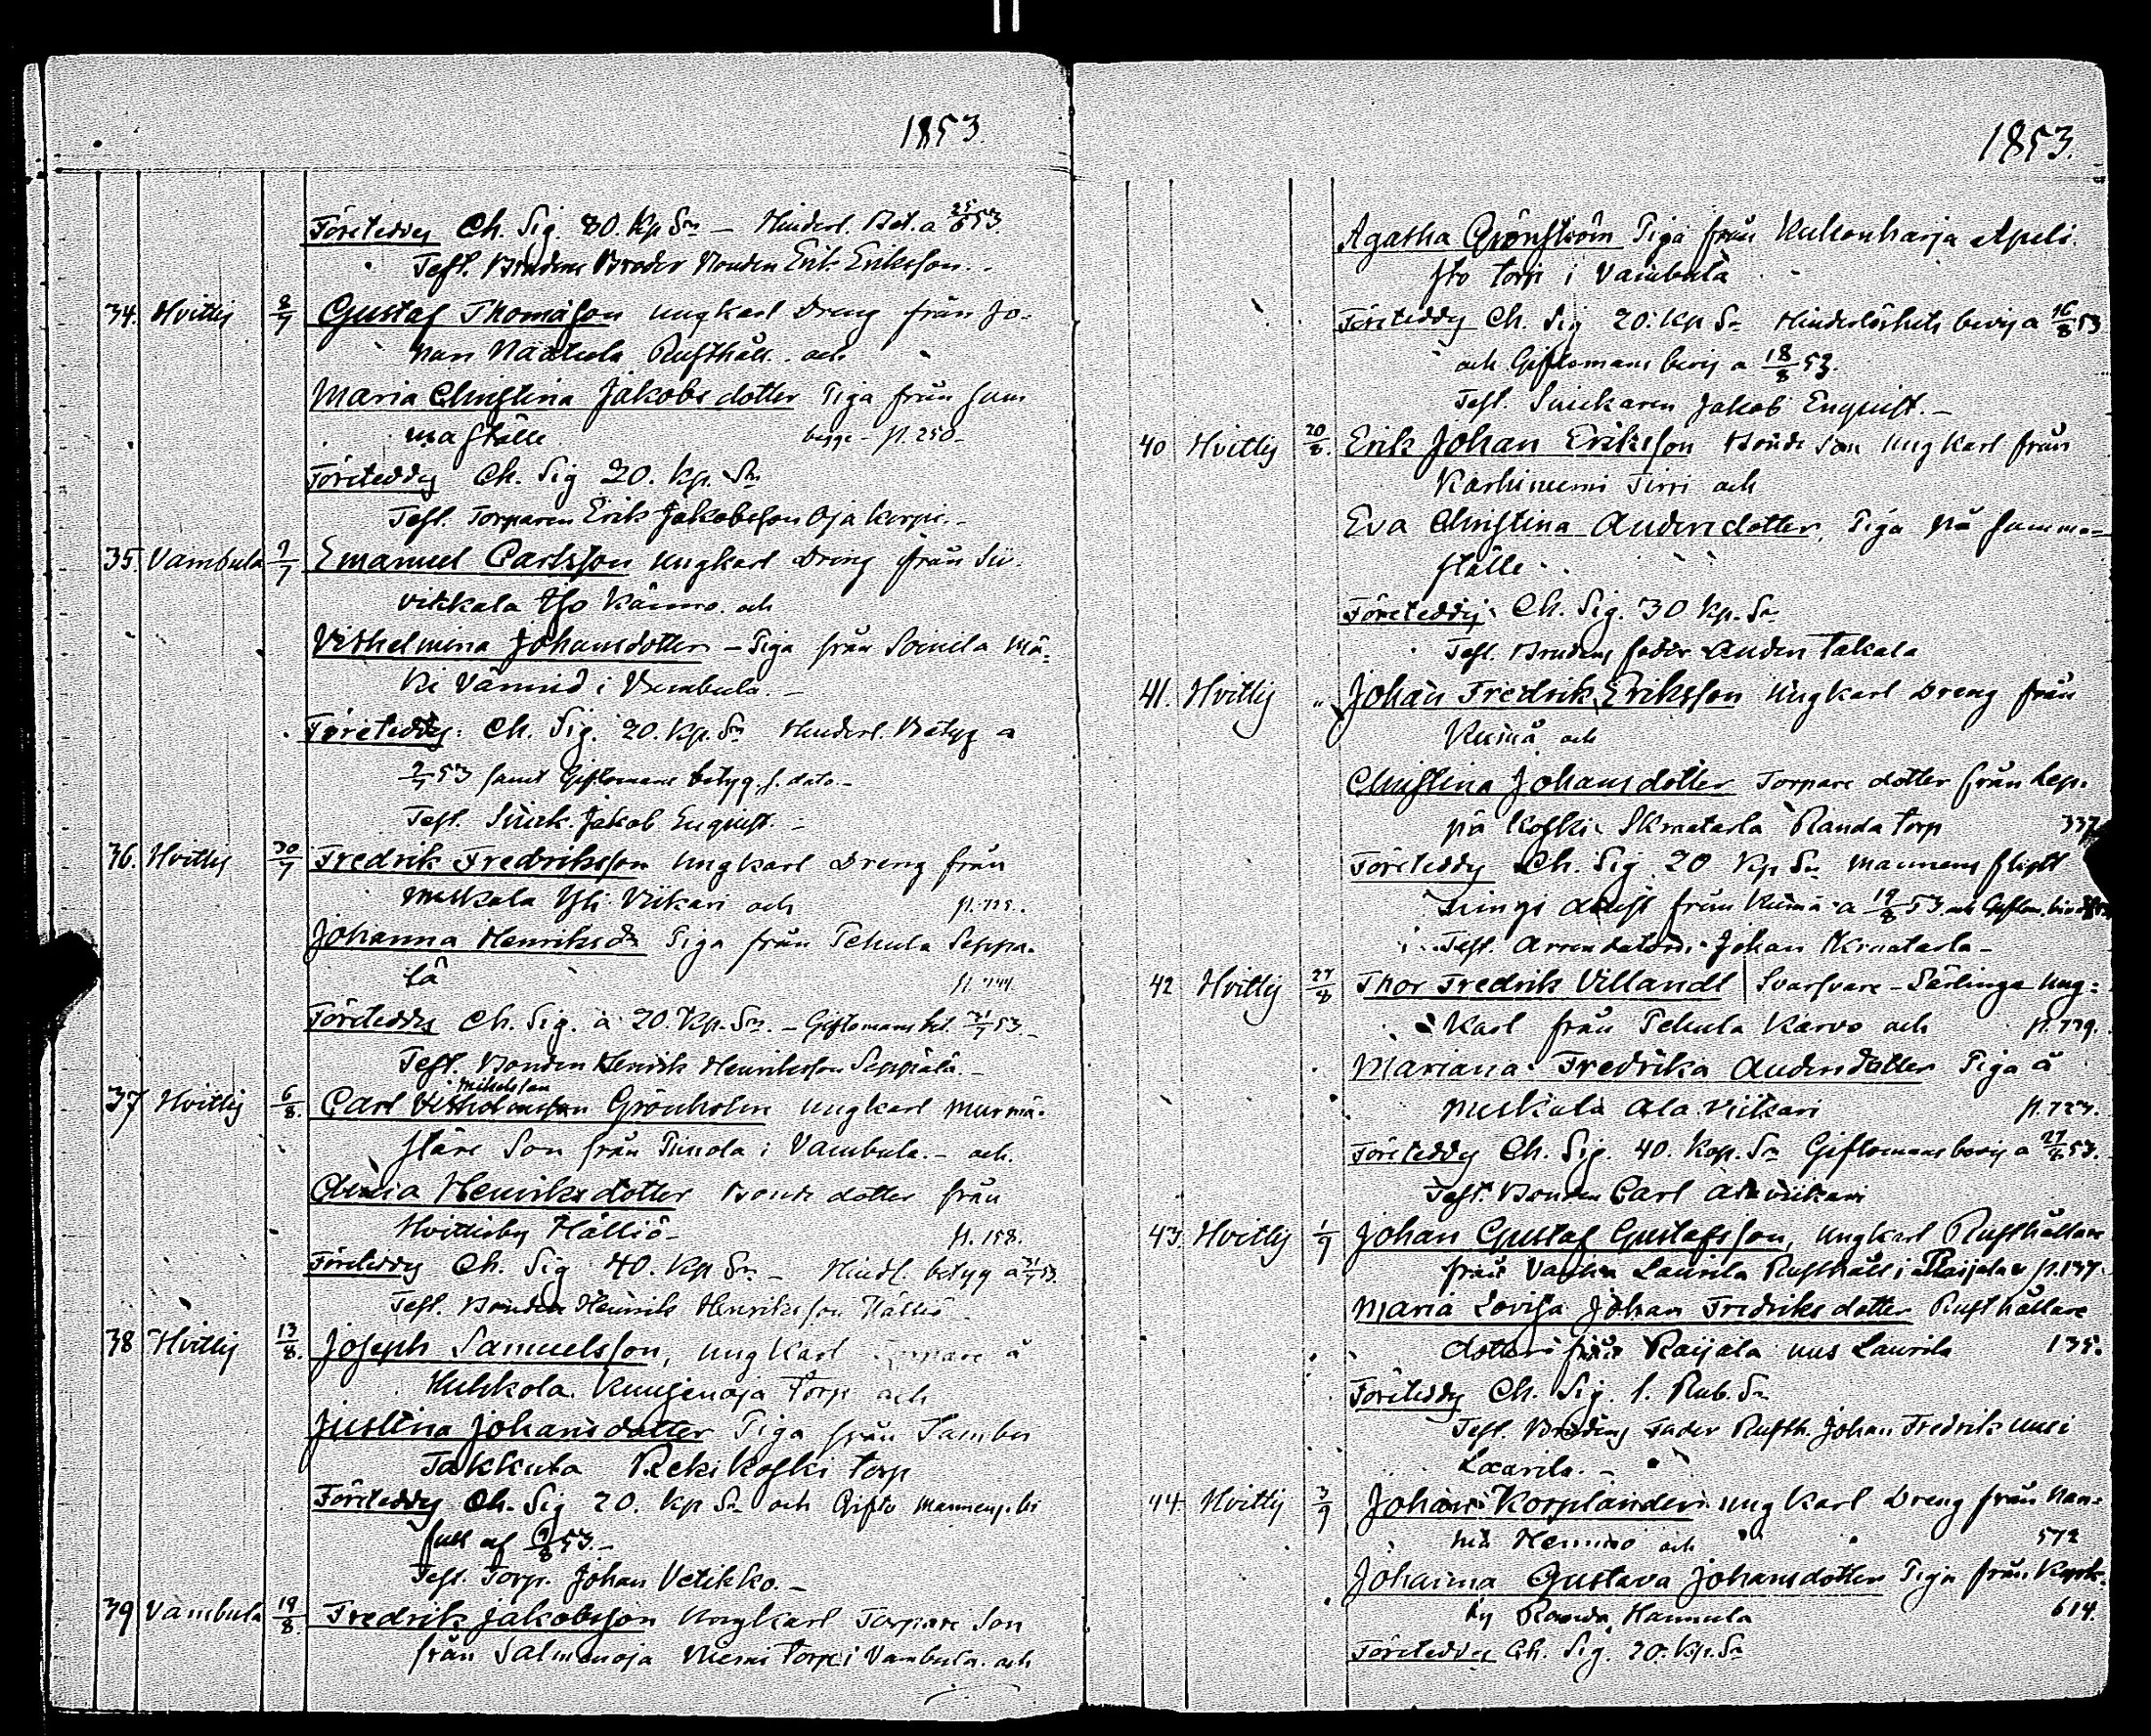 1853.
Företeddes Ch. Sig. 30. Kp Sr — Hinderl. Bet. a 25/6 53.
Test. Brudens Broder Bonden Erik Eriksson.
34. Hvittis 8/7 Gustaf Thomasson ungkarl Dreng från Jo-
nan Naatula Rusthåll. och
Maria Christina Jakobsdotter Piga från sam
ma ställe begge - p. 250.
Företeddes Ch. Sig 20. kp. Sr
Test. Torparen Erik Jakobsson Oja korpi.
35. Vambula 9/7 Emanuel Carlsson ungkarl Dreng från Su-
vikkala och
Vilhelmina Johansdotter - Piga från Soinila Mä-
ki i Vambula. -
Företeddes: Ch. Sig. 20. kp. Sr Hinderl. Betyg a
9/7 53 samt Giftomans betyg. s. dato. -
Test. Snick. Jakob Enquist. -
36. Hvittis 30/7 Fredrik Fredriksson ungkarl Dreng från
Meskala Yli Viikari och
Johanna Henriksdr Piga från Pehula Seppä-
lä
Företeddes Ch. Sig. à 20. Kp. Sr. - Giftomans bet. 21/7 53. -
Test. Bonden Henrik Henriksson Seppälä. -
Mikelsson
37 Hvittis 6/8. Carl Vilhelmsson Grönholm ungkarl Murmä-
stare Son från Punola i Vambula. - och.
Henriksdotter Bonde dotter från
Hvittisby Hälliö - p. 158.
Företeddes Ch. Sig 40. Kp Sr. - Hindl. betyg a 31/7 53.
Test. Bonden Henrik Henriksson Hälliö
38 Hvittis 13/8. Joseph Samuelsson, ungkarl Torpare å
Huhkola. Torp och
Justina Johansdotter Piga från
Takkula Rekikoski torp
Företeddes Ch. Sig 20. Kp Sr och Gifto mannens bi
fall af 9/8 53. -
Test. Torp. Johan Vetikko. -
39 Vambula 19/8. Fredrik Jakobsson Ungkarl Torpare Son
från Salmenoja Niemi Torp i Vambula. och
1853.
Agatha Grönström Piga från Kukonharja
sto torp i Vambula
Företeddes Ch. Sig 20. Kp Sr Hinderlöshets bevis a 16/8 53
och Giftomans bevis a 18/8 53.
Test. Snickaren Jakob Enquist. -
40 Hvittis 20/8. Erik Johan Eriksson Bonde Son Ungkarl från
Karhiniemi Sirri och
Eva Christina Andersdotter, Piga på samma
ställe.
Företeddes Ch. Sig. 30 kp. Sr
Test. Brudens fader Anders Takala
41. Hvittis " Johan Fredrik Eriksson Ungkarl Dreng från
Kiumå och
Christina Johansdotter Torpare dotter från Lep-
pä koski Randa torp 337
Företeddes Ch. Sig 20 Kp Sr Mannens flytt
från Kiuma a 19/8 53.
Test. Arrendatorn Johan
42 Hvittis 27/8 Thor Fredrik Villandt Svarfvare - Lärlinge Ung-
karl från Pehula Karvo och
Mariana Fredrika Andersdotter Piga å
Meskala Ala Viikari
Företeddes Ch. Sig. 40. Kop. Sr Giftomans bevis a 27/8 53.
Test. Bonden Carl Ala viikari
43. Hvittis 1/9 Johan Gustaf Gustafsson, Ungkarl Rusthållare
från Vanha Laurila Rusthåll i Raijala p. 137.
Maria Lovisa Johan Fredriksdotter Rusthållare
dotter från Raijala uus Laurila 135.
Företeddes Ch. Sig. 1. Rub. Sr
Test. Brudens Fader Rusth. Johan Fredrik uusi
Laurila. -
44 Hvittis 3/9 Johan Korplander ungkarl Dreng från Nan-
hia Hemmo och 572
Johanna Gustava Johansdotter Piga från Kyrk-
by Hannula 614.
Företeddes Ch. Sig. 20. Kp. Sr